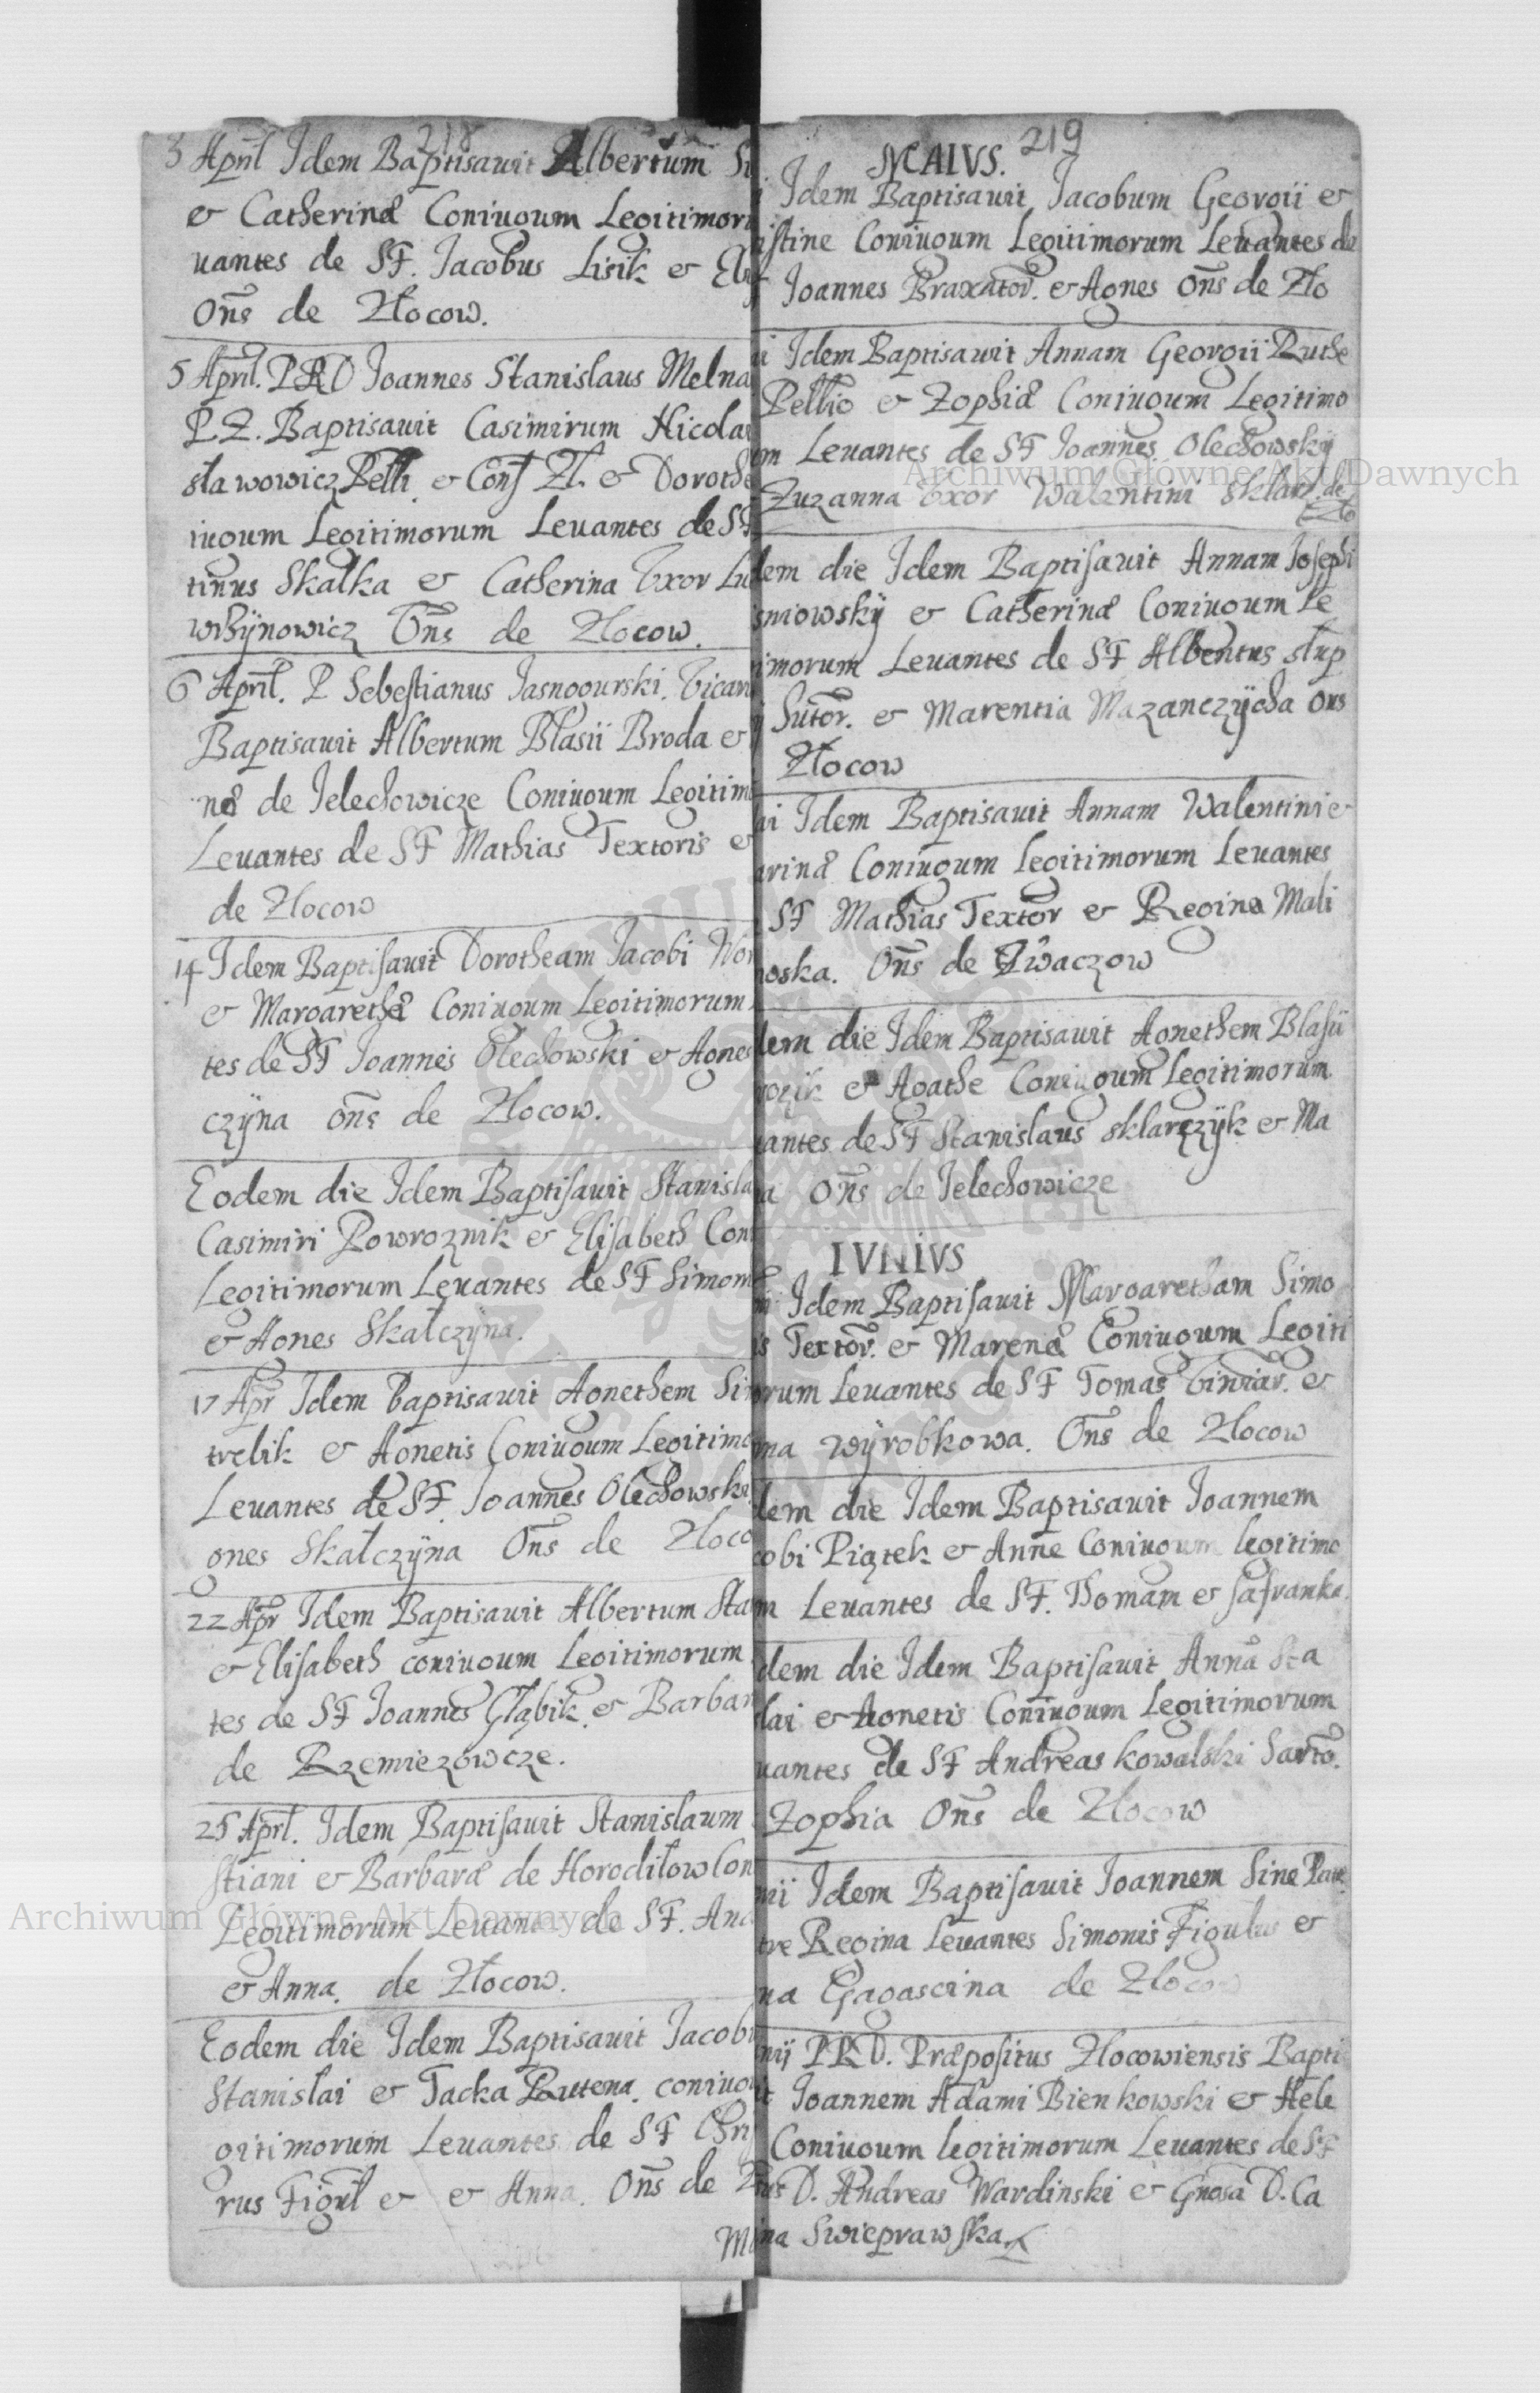 218
3 April Idem Baptisauit Albertum Si
& Catherinæ Coniugum Legitimoru
uantes de SF. Jacobus Lisik & Elis
Oñs de Złocow.
5 April. PRD Joannes Stanislaus Melna
P.Z. Baptisauit Casimirum Nicolai
sławowicz Pelli. & Cons Zł. & Dorothe
iugum Legitimorum Leuantes de SF
tinus Skałka & Catherina Vxor Lu
Oñs de Złocow.
6 April. P Sebestianus Jasnogurski. Vicari
Baptisauit Albertum Błasii Broda &
næ de Jelechowicze Coniugum Legitimo
Leuantes de SF Mathias Textoris &
de Złocow
14 Idem Baptisauit Dorotheam Jacobi Wor
& Margarethæ Coniugum Legitimorum
tes de SF Joannes Olechowski & Agnes
czÿna oñs de Złocow.
Eodem die Idem Baptisauit Stanisla
Casimiri Powroznik & Elisabeth Con
Legitimorum Leuantes de SF Simon
& Agnes Skałczÿna.
17 Apr Idem Baptisauit Agnethem Si
trelik & Agnetis Coniugum Legitimo
Leuantes de SF. Joannes Olechowski
gnes Skałczÿna Oñs de Złoco
22 Apr Idem Baptisauit Albertum Sta
& Elisabeth coniugum Legitimorum
tes de SF Joannes Głąbik. & Barbar
de Rzemiezowcze.
25 Aprl. Idem Baptisauit Stanislaum
stiani & Barbaræ de Horodiłow Con
Legitimorum Leuantes de SF. And
& Anna. de Złocow.
Eodem die Idem Baptisauit Jacobu
Stanislai & Jacka Rutena. coniug
gitimorum Leuantes de SF Chri
rus Figul & & Anna. Oñs de Z
219
MAIVS.
Idem Baptisauit Jacobum Georgii &
istine Coniugum Legitimorum Leuantes de
Joannes Braxator. & Agnes Oñs de Zło
i Idem Baptisauit Annam Georgii Ruthe
Pellio & Zophiæ Coniugum Legitimo
m Leuantes de SF Joannes Olechowskÿ
Zuzanna Vxor Walentini Sklarz de
Zło
dem die Idem Baptisauit Annam Josephi
sniowskÿ & Catherinæ Coniugum Le
imorum Leuantes de SF Albertus słup
Sutor. & Marentia Mazanczÿcha Ons
Złocow
ai Idem Baptisauit Annam Walentini &
arinæ Coniugum Legitimorum Leuantes
SF Mathias Textor & Regina Mali
noska. Oñs de Zwaczow
dem die Idem Baptisauit Agnethem Blasii
& Agathe Coniugum Legitimorum
uantes de SF Stanislaus Sklarczÿk & Ma
a Oñs de Jelechowicze
IVNIVS
Idem Baptisauit Margaretham Simo
is Textor. & Marenæ Coniugum Legiti
orum Leuantes de SF Tomas &
ma Wÿrobkowa. Oñs de Złocow
dem die Idem Baptisauit Joannem
cobi Piątek & Anne Coniugum legitimo
m Leuantes de SF. Thomam & Safranka.
dem die Idem Baptisauit Annā Sta
lai & Agnetis Coniugum Legitimorum
uantes de SF Andreas Kowalski Sarto.
Zophia Oñs de Złocow
nii Idem Baptisauit Joannem Sine Patre
tre Regina Leuantes Simonis Figulus &
na Gagascina de Złocow
nij PRD. Præpositus Złocowiensis Bapti
it Joannem Adami Bienkowski & Hele
Coniugum legitimorum Leuantes de SF
sus D. Andreas Wardinski & Gnosa D. Ca
ina Swieprawska
Archiwum Główne Akt Dawnych
Archiwum Główne Akt Dawnych